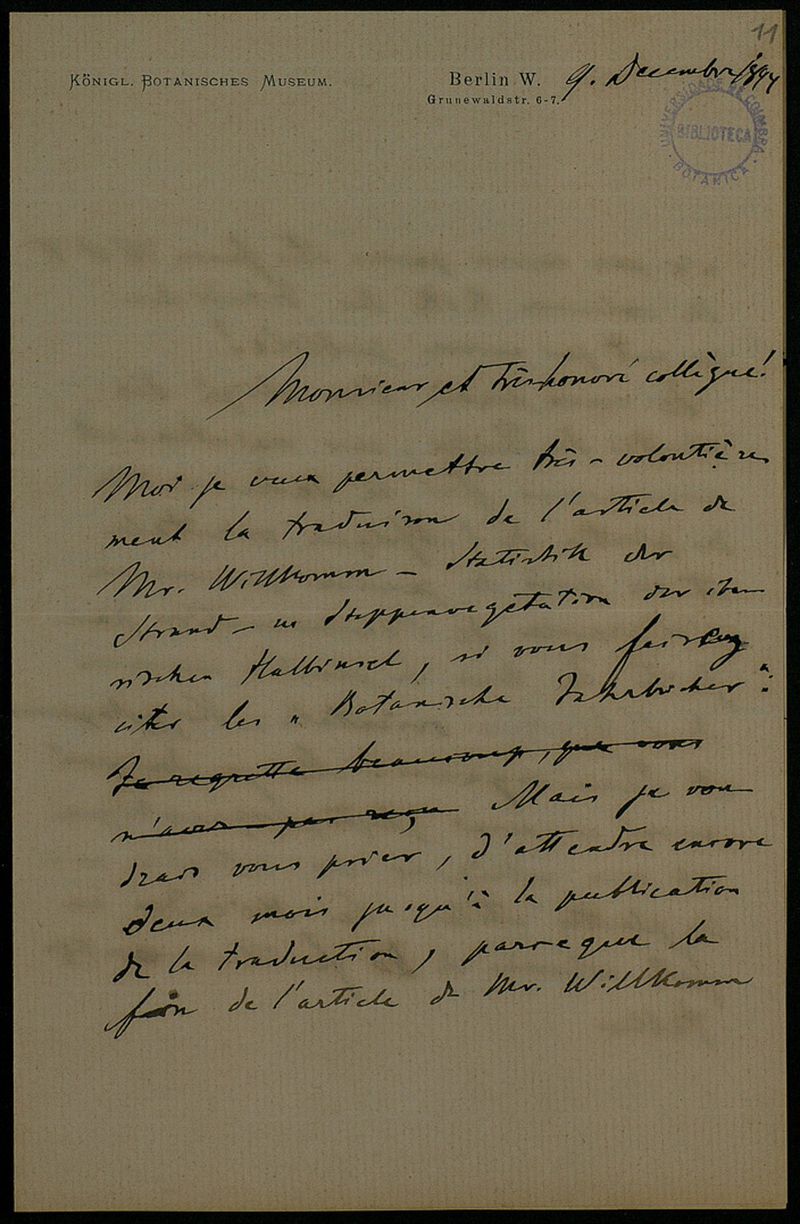 11
KÖNIGL. BOTANISCHES MUSEUM.
Berlin W. 9. Decembre 1894
Grunewaldstr. 6-7.
UNIVERSIDADE DE COIMBRA
BIBLIOTECA
BOTANICA
Monsieur et très honoré collègue!
Moi je veux permettre très-volontière
ment la traduison de l'article de
Mr. Willkomm – Statistik der
Strand- u Steppenvegetation der ibe
rischen Halbinsel, si vous
citer les "Botanische Jahrbücher":
Je regrette beaucoup, que vous
n'avez pas reçu Mais je vou
drais vous prier, d'attendre encore
deux mois jusqu'à la publication
de la traduction, parceque la
fin de l'article de Mr. Willkomm